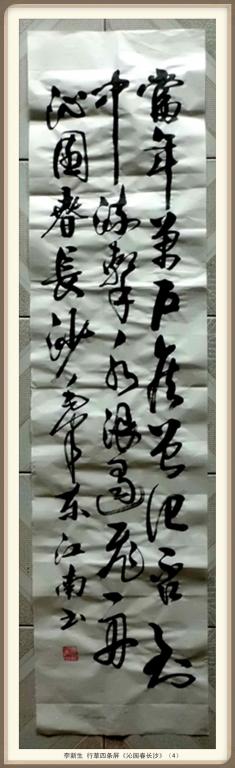 當年萬戶侯曾记否到
中流擊水浪遏飛舟
沁園春長沙毛澤东江南书
李新生 行草四条屏《沁园春长沙》（4）